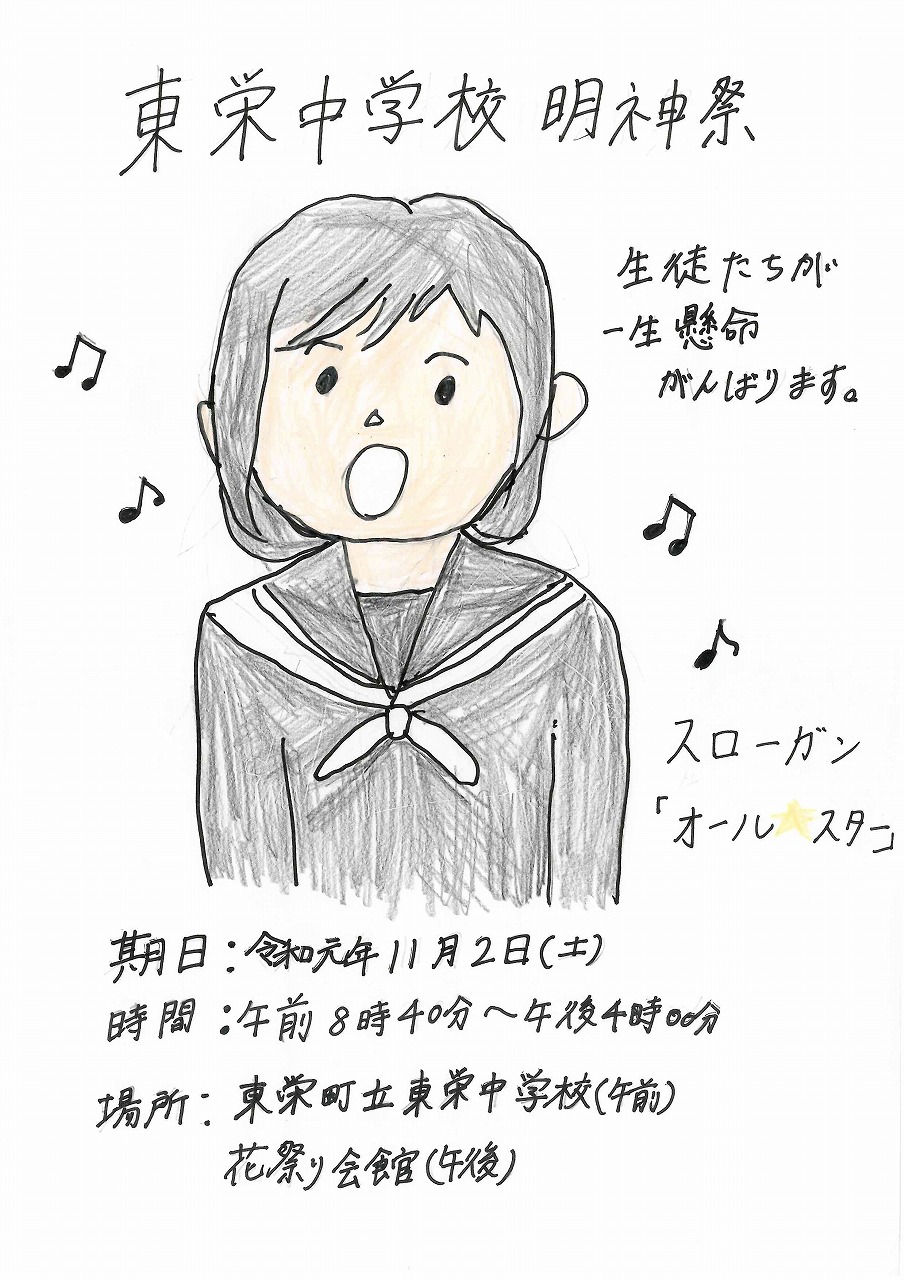 東栄中学校 明神祭
生徒たちが
一生懸命
がんばります。
スローガン
「オール★スター」
期日：令和元年11月2日(土)
時間：午前8時40分～午後4時00分
場所：東栄町立東栄中学校(午前)
花祭り会館(午後)